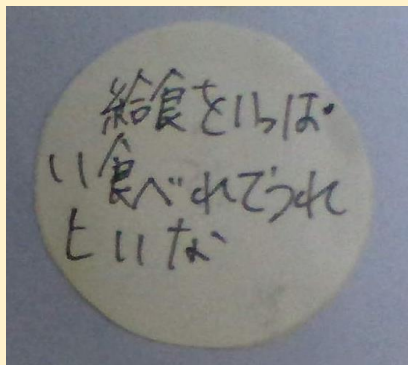 給食をいっぱ
い食べれてうれ
しいな